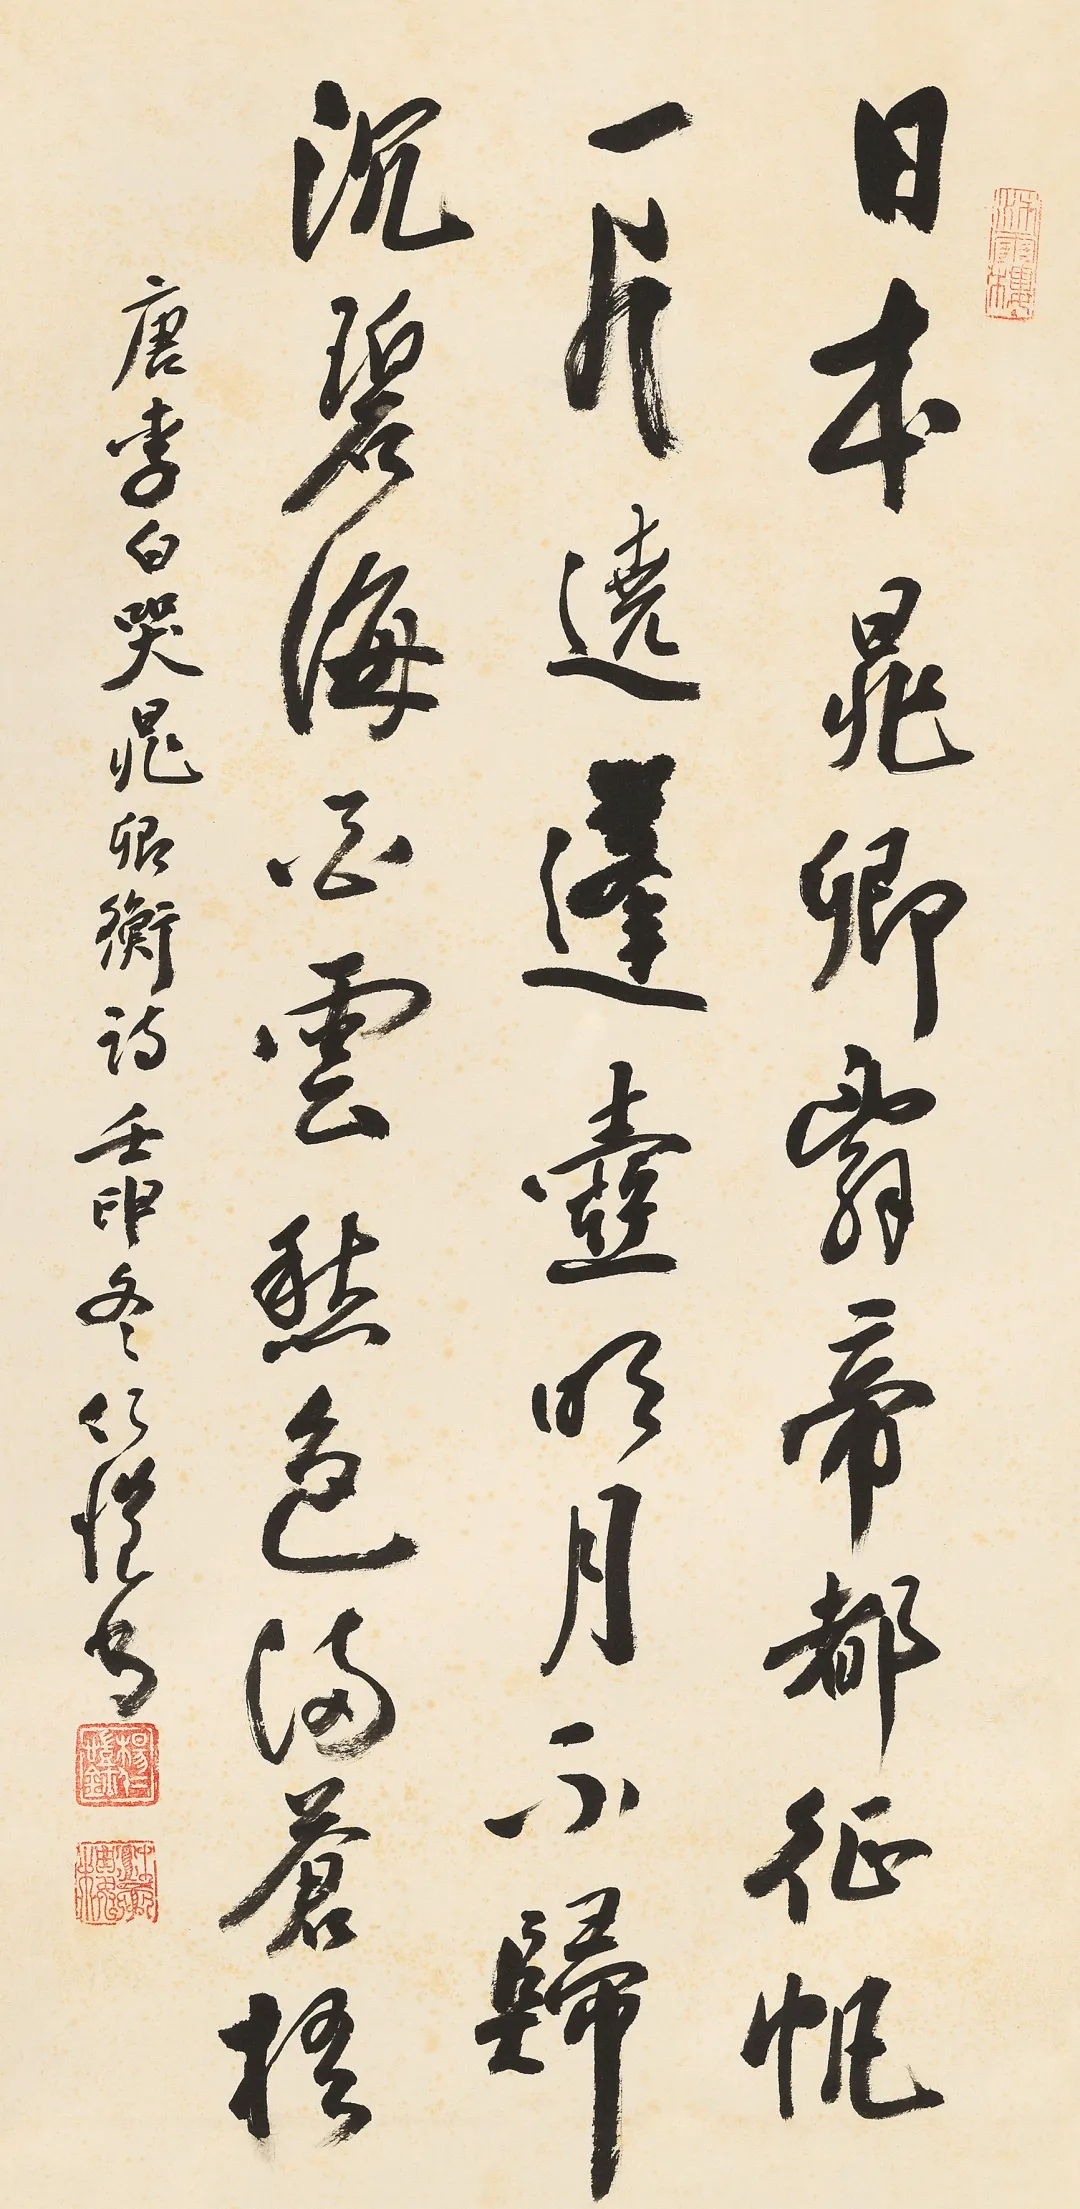 日本晁卿辭帝都征帆
一片遶蓬壺明月不歸
沉碧海白雲愁色滿蒼梧
唐李白哭晁卿衡詩壬申冬仁愷書
楊仁愷鉥